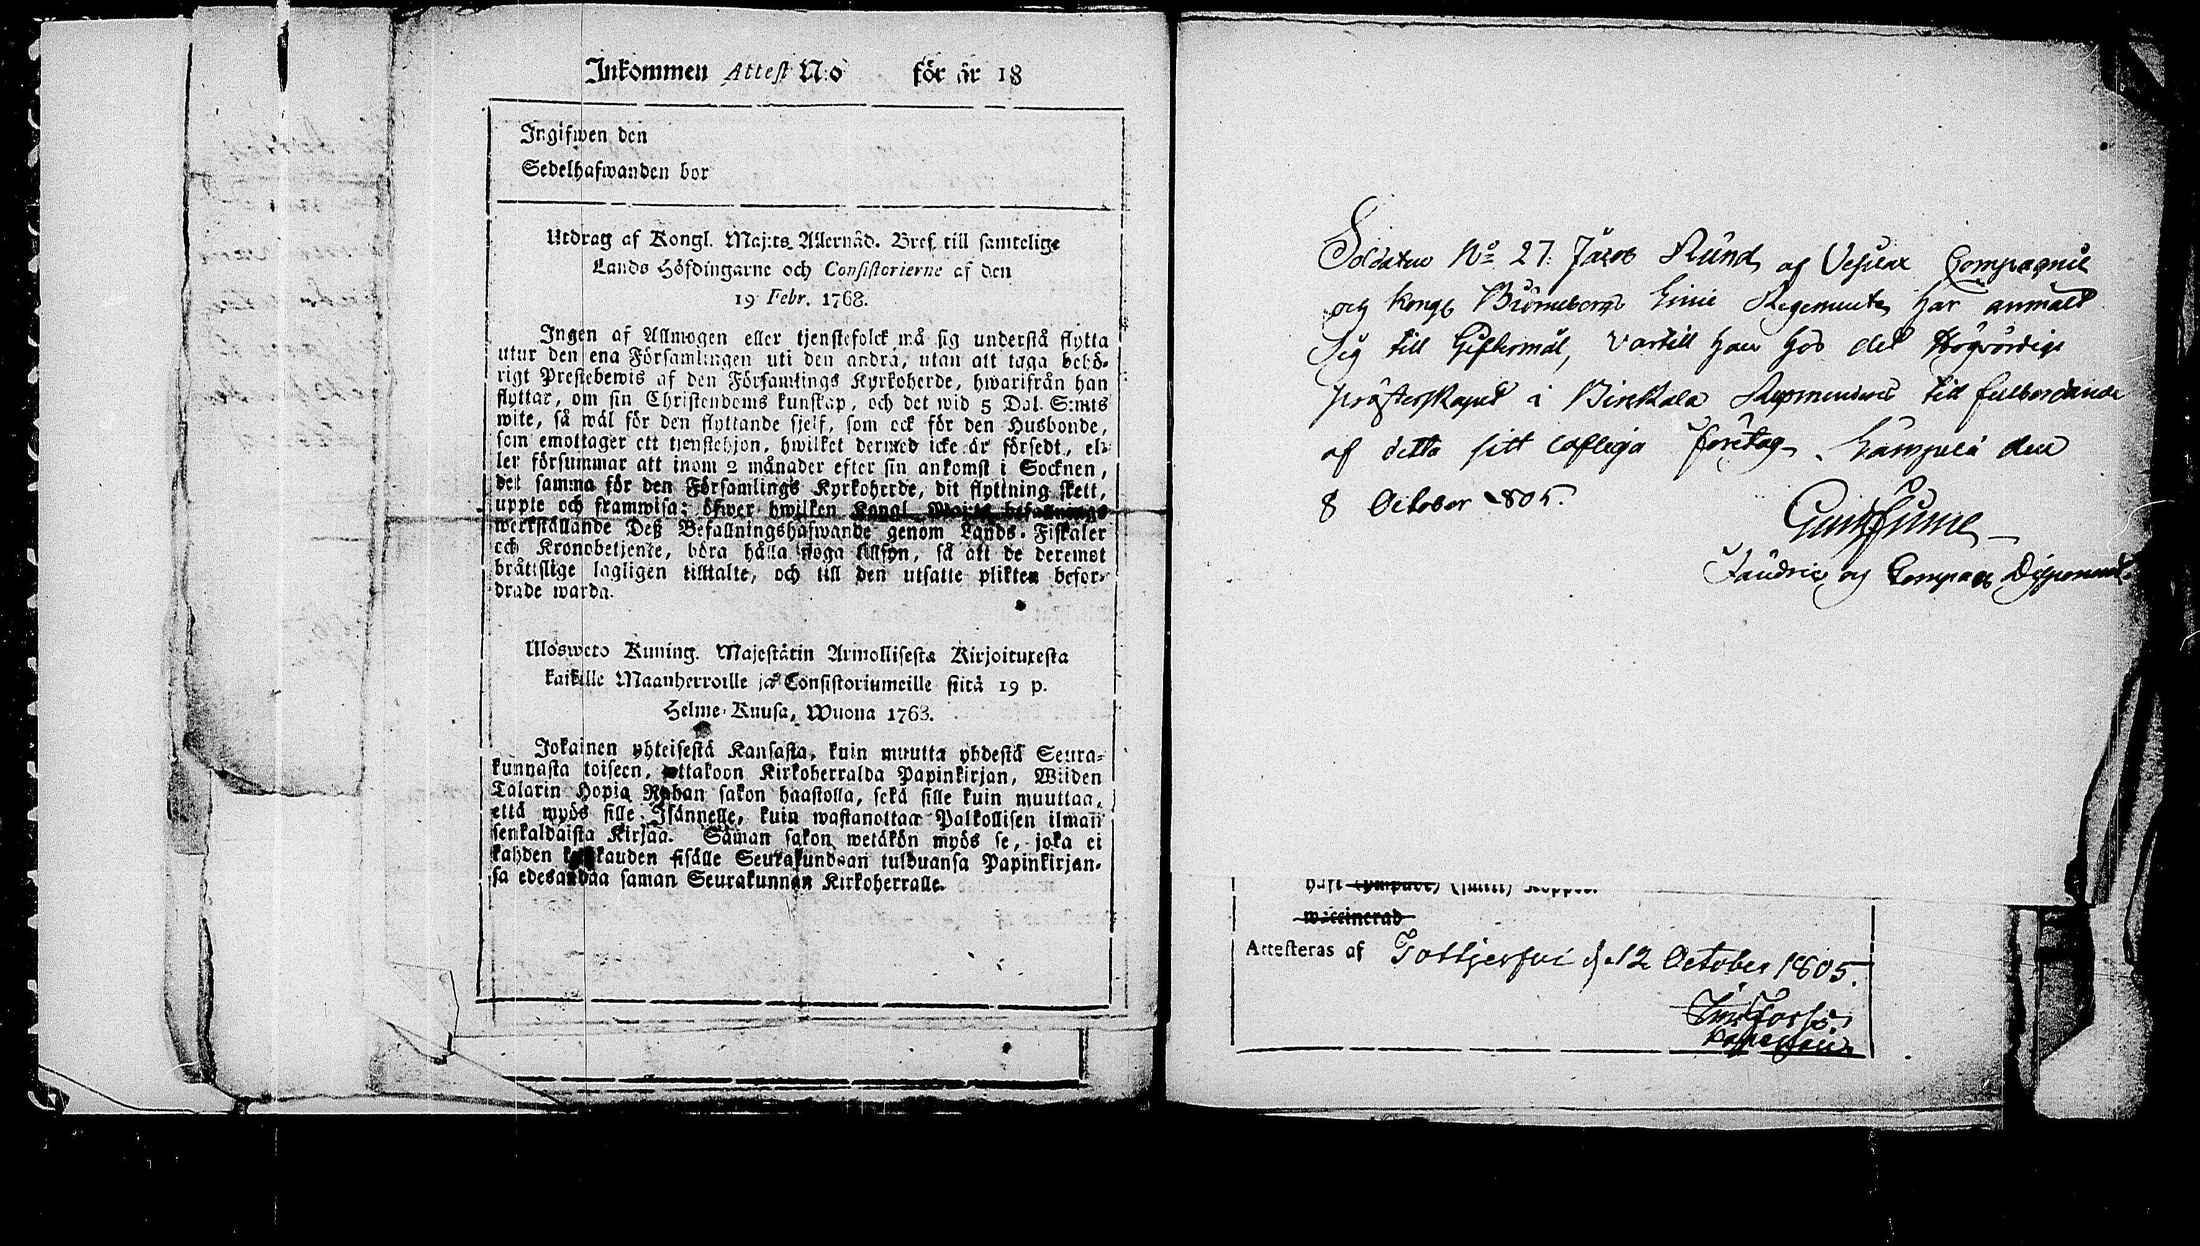 Inkommen Attest N:o för år 18
Ingifwen den
Sedelhafwanden bor
Utdrag af Kongl. Maj:ts Allernåd. Bref till samtelige
Lands Höfdingarne och Consistorierne af den
19 Febr. 1768.
Ingen af Allmogen eller tjenstefolck må sig understå flytta
utur den ena Församlingen uti den andra, utan att taga behö-
rigt Prestebewis af den Församlings Kyrkoherde, hwarifrån han
flyttar, om sin Christendoms kunskap, och det wid 5 Dal. S:mts
wite, så wäl för den flyttande sjelf, som ock för den Husbonde,
som emottager ett tjenstehjon, hwilket dermed icke är försedt, el-
ler försummar att inom 2 månader efter sin ankomst i Socknen,
det samma för den Församlings Kyrkoherde, dit flyttning skett,
uppte och framwisa; öfwer hwilken Kongl. Maj:ts befallnings
werkställande Deß Befallningshafwande genom Lands-Fiskaler
och Kronobetjente, böra hålla noga tillsyn, så att de deremot
bråttslige lagligen tilltalte, och till den utsatte plikten befor-
drade warda.
Ulosweto Kuning. Majestätin Armollisesta Kirjoituxesta
kaikille Maanherroille ja Consistoriumeille siitä 19 p.
Helme-Kuusa, Wuona 1768.
Jokainen yhteisestä Kansasta, kuin muutta yhdestä Seura-
kunnasta toiseen, ottakoon Kirkoherralda Papinkirjan, Wiiden
Talarin Hopia Rahan sakon haastolla, sekä sille kuin muuttaa,
että myös sille Isännelle, kuin wastanottaa Palkollisen ilman
senkaldaista Kirjaa. Saman sakon wetäkön myös se, joka ei
kahden kuukauden sisälle Seurakundaan tulduansa Papinkirjan-
sa edesandaa saman Seurakunnan Kirkoherralle.
Soldaten No 27. Jacob Slund af Vesilax Compagnie
och Kongl Björneborgs Linie Regemente, har anmält
Sig till Giftermål, vartill han hos det Högvördige
prästerskapet i Birkkala Recommenderas till fulbordande
af detta sitt lofliga företag. Lämpelä den
8 October 1805.
och Compagnie
waccinerad
Attesteras af Tottjerfvi d. 12 October 1805.